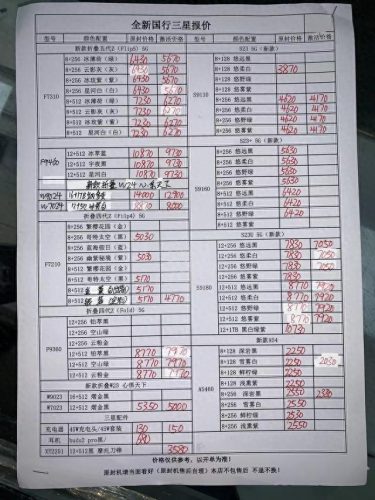 全新国行三星报价
型号 颜色配置 原封价格 激活价格 型号 颜色配置 原封价格 激活价格
新款折叠五代2 (Flip5) 5G
F7310
8+256 冰薄荷（绿） 6430 5670
8+256 云影灰（灰） 6930 5670
8+256 冰玫紫（紫） 6430 5670
8+256 星河白（白） 6430 5670
8+512 冰薄荷（绿） 7230 6270
8+512 云影灰（灰） 7230 6270
8+512 冰玫紫（紫） 7230 6270
8+512 星河白（白） 7230 6270
F9460
12+512 冰萃蓝 10870 9730
12+512 宇夜黑 10870 9730
12+512 星河白 10870 9730
W9024 16+1TB 19000 12900
W7024 8000
折叠四代2 (Flip4) 5G
F7210
8+256 繁樱花园（金）
8+256 哥特太空（黑） 5030
8+256 蓝海假日（蓝）
8+256 幽紫秘境（紫） 5030
8+512 繁樱花园（金）
8+512 哥特太空（黑） 5170
8+512 5170
8+512 5170 4770
折叠四代2 (Fold4) 5G
F9360
12+256 铂萃黑
12+256 空山绿
12+256 云粉金
12+512 铂萃黑 8770 7970
12+512 空山绿 8770 7970
12+512 云粉金 8770 7970
新款折叠W23 心系天下
W9023 16+512 熠金黑
W7023 12+512 熠金黑 5350 5000
三星配件
充电器 45W充电头/45W套装 130 150
耳机 buds2 pro黑/ 680
XT2251 12+512 摩托刀锋 3580
S23 5G（新款）
S9110
8+128 悠远黑
8+128 悠柔白 3870
8+128 悠野绿
8+128 悠雾紫
8+256 悠远黑 4620 4170
8+256 悠柔白 4620 4170
8+256 悠野绿 4620 4170
8+256 悠雾紫 4620 4170
S23+ 5G（新款）
S9160
8+256 悠远黑 5630
8+256 悠柔白 5630
8+256 悠野绿 5630
8+256 悠雾紫 5630
8+512 悠远黑 6420
8+512 悠柔白 6420
8+512 悠野绿 6420
8+512 悠雾紫 6420
S23U 5G（新款）
S9180
12+256 悠远黑 7830 7050
12+256 悠柔白 7830 7050
12+256 悠野绿 7830 7050
12+256 悠雾紫 7830 7050
12+512 悠远黑 8770 7920
12+512 悠柔白 8770 7920
12+512 悠野绿 8770 7920
12+512 悠雾紫 8770 7920
12+1TB 黑白绿紫 10730
新款A54
A5460
8+128 深岩黑 2250
8+128 雪雾白 2250 2030
8+128 鲜柠绿 2250
8+128 浅熏紫 2250
8+256 深岩黑 2550 2380
8+256 雪雾白 2550
8+256 鲜柠绿 2530
8+256 浅熏紫 2550
价格仅供参考，以开单为准！
原封机请当面看好（原封机售后自理）本店不包售后 不退不换！